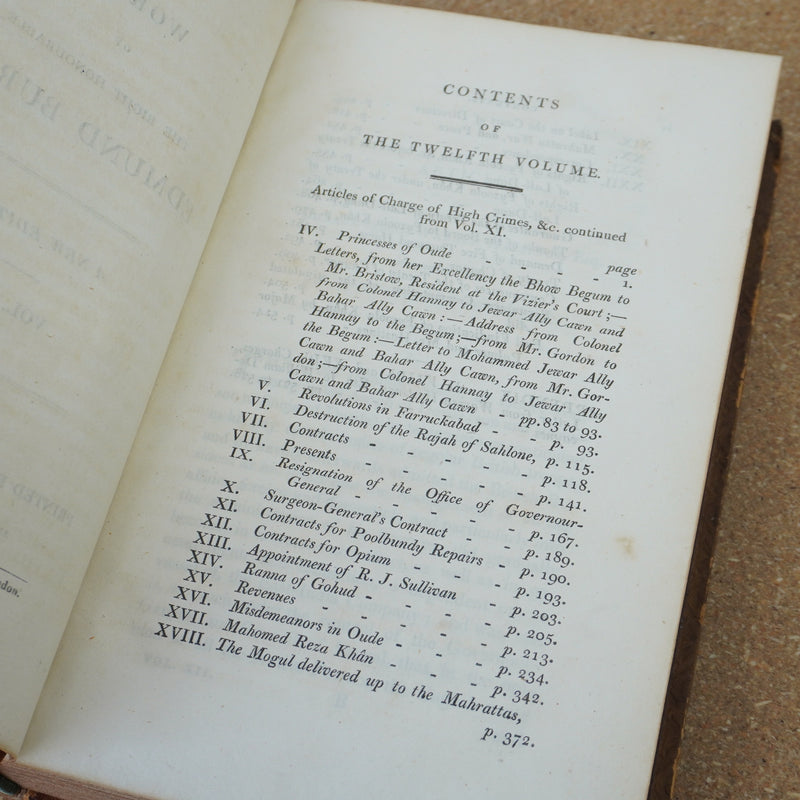 CONTENTS
OF
THE TWELFTH VOLUME.
Articles of Charge of High Crimes, &c. continued
from Vol. XI.
page
IV. Princesses of Oude - - - - 1.
Letters, from her Excellency the Bhow Begum to
Mr. Bristow, Resident at the Vizier's Court;—
from Colonel Hannay to Jewar Ally Cawn and
Bahar Ally Cawn:—Address from Colonel
Hannay to the Begum;—from Mr. Gordon to
the Begum:—Letter to Mohammed Jewar Ally
Cawn and Bahar Ally Cawn, from Mr. Gor-
don;—from Colonel Hannay to Jewar Ally
Cawn and Bahar Ally Cawn - pp. 83 to 93.
V. Revolutions in Farruckabad - - p. 93.
VI. Destruction of the Rajah of Sahlone, p. 115.
VII. Contracts - - - - - p. 118.
VIII. Presents - - - - - p. 141.
IX. Resignation of the Office of Governour-
General - - - - - p. 167.
X. Surgeon-General's Contract - - p. 189.
XI. Contracts for Poolbundy Repairs - p. 190.
XII. Contracts for Opium - - - p. 193.
XIII. Appointment of R. J. Sullivan - p. 203.
XIV. Ranna of Gohud - - - - p. 205.
XV. Revenues - - - - - p. 213.
XVI. Misdemeanors in Oude - - - p. 234.
XVII. Mahomed Reza Khân - - - p. 342.
XVIII. The Mogul delivered up to the Mahrattas,
p. 372.